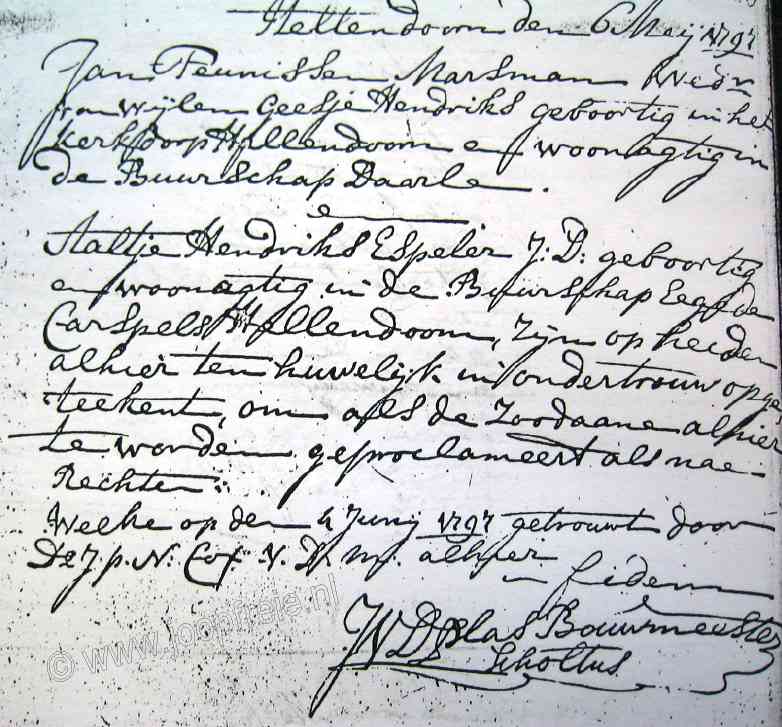 Hellendoorn den 6 Meij 1797
Jan Teunissen Marsman Wedr
van Wijlen Geesje Hendriks geboortig in het
Kerkdorp Hellendoorn en woonagtig in
de Buurschap Daarle.
en
Aaltje Hendriks Espeler J: D: geboortig
en woonagtig in de Buurschap Eegede
Carspels Hellendoorn, zijn op heeden
alhier ten huwelijk in ondertrouw opge
teekent, om als de zoodaane alhier
te worden geproclameert als nae
Rechten:
Welke op den 4 Junij 1797 getrouwt door
Ds J. p. N. Cof V. D. m. alhier
in fidem
Plas Bouwmeester
Scholtus
© www.joopfreie.nl